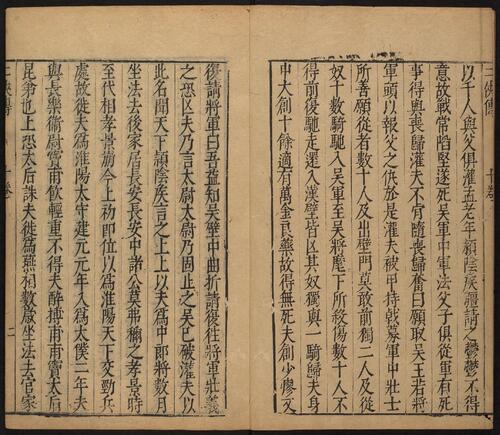 以千人與父俱灌孟老年潁陰侯彊請之鬱鬱不得
意故戰常陷堅遂死吳軍中軍法父子俱從軍有死
事得與喪歸灌夫不肯隨喪歸奮曰願取吳王若將
軍頭以報父之仇於是灌夫被甲持戟募軍中壯士
所善願從者數十人及出壁門莫敢前獨二人及從
奴十數騎馳入吳軍至吳將麾下所殺傷數十人不
得前復馳走還入漢壁皆亡其奴獨與一騎歸夫身
中大創十餘適有萬金良藥故得無死夫創少瘳又
復請將軍曰吾益知吳壁中曲折請復往將軍壯義
之恐亡夫乃言太尉太尉乃固止之吳已破灌夫以
此名聞天下潁陰侯言之上上以夫為中郎將數月
坐法去後家居長安長安中諸公莫弗稱之孝景時
至代相孝景崩今上初即位以為淮陽天下交勁兵
處故徙夫為淮陽太守建元元年入為太僕二年夫
與長樂衛尉竇甫飲輕重不得夫醉搏甫甫竇太后
昆弟也上恐太后誅夫徙為燕相數歲坐法去官家
二